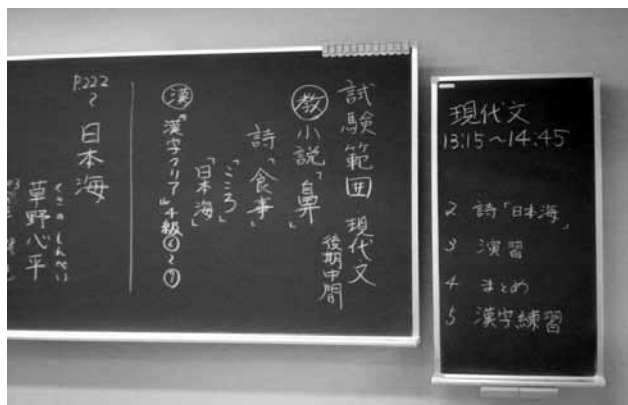 試験範囲 現代文
後期中間
教 小説「鼻」
詩「食事」
「こころ」
「日本海」
漢 『漢字クリア』4級 〜⑦
P.222〜 日本海
くさの しんぺい
草野心平
現代文
13:15〜14:45
2 詩「日本海」
3 演習
4 まとめ
5 漢字練習